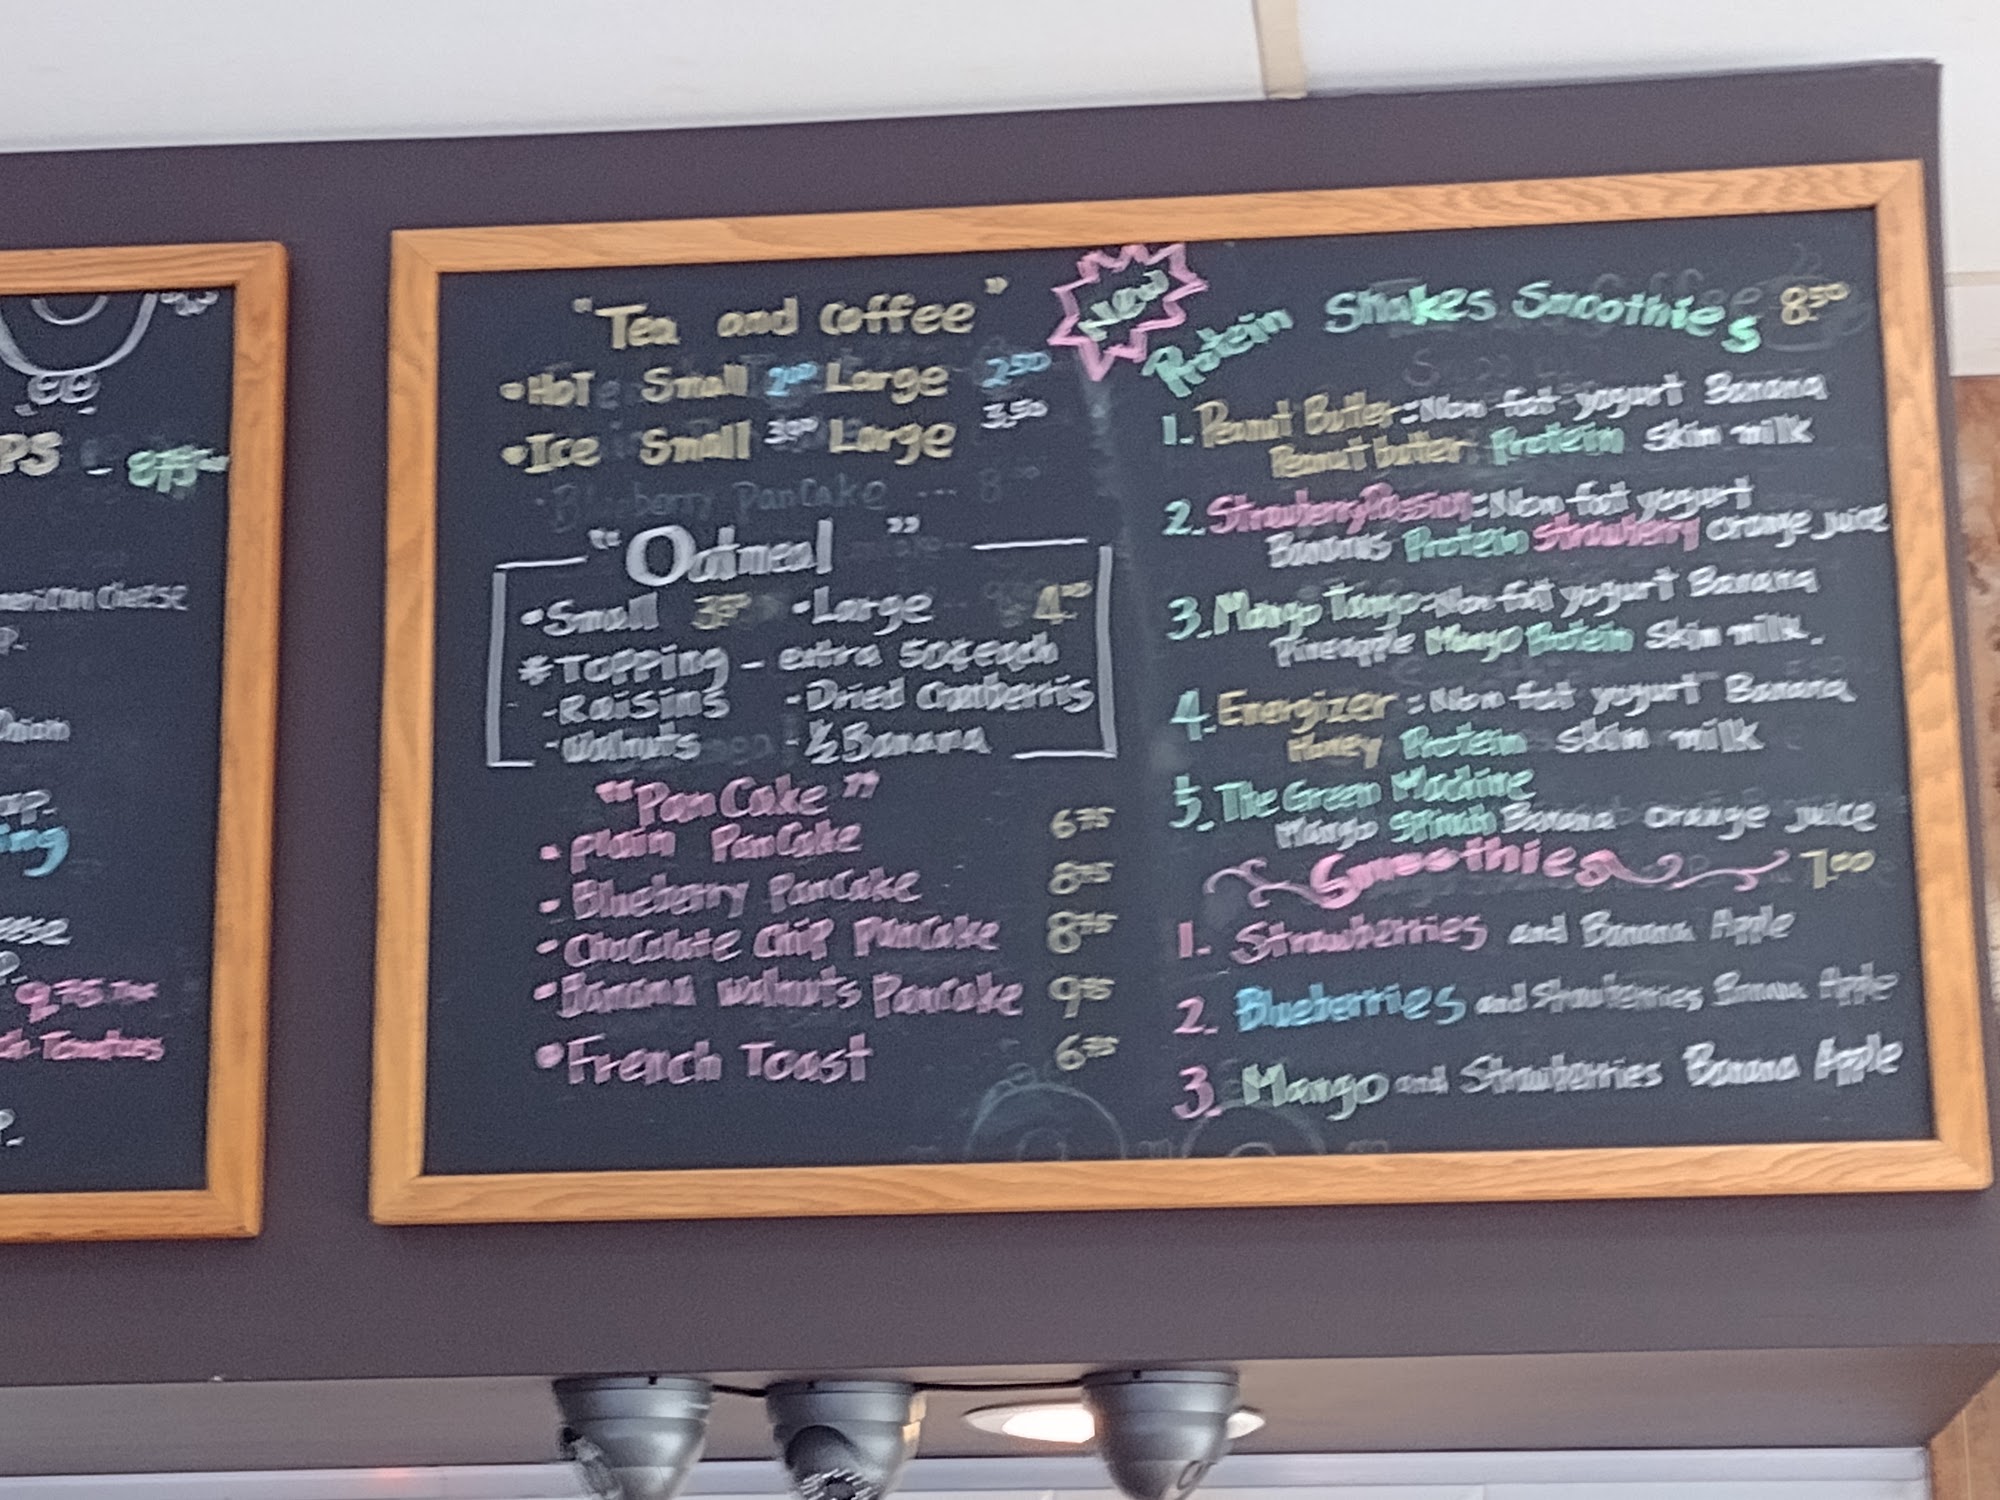 PS - 8.75
American Cheese
ing
9.75
Tomatoes
"Tea and Coffee"
•Hot Small 2.00 Large 2.50
•Ice Small 3.00 Large 3.50
Blueberry Pancake
"Oatmeal"
•Small •Large
*Topping - extra 50¢ each
-Raisins -Dried Cranberris
-Walnuts -½ Banana
"PanCake"
• Plain PanCake 6.75
- Blueberry PanCake 8.75
• Chocolate Chip PanCake 8.75
• Banana walnuts PanCake 9.75
•French Toast 6.75
New
Protein Shakes Smoothies 8.50
1. Peanut Butter: Non fat yogurt Banana
Peanut butter Protein Skim milk
2. Strawberry Passion: Non fat yogurt
Bananas Protein Strawberry orange juice
3. Mango Tango: Non fat yogurt Banana
Pineapple Mango Protein Skim milk.
4. Energizer: Non fat yogurt Banana
Honey Protein Skim milk
5. The Green Machine
Mango Spinach Banana orange juice
Smoothies 7.00
1. Strawberries and Banana Apple
2. Blueberries and Strawberries Banana Apple
3. Mango and Strawberries Banana Apple